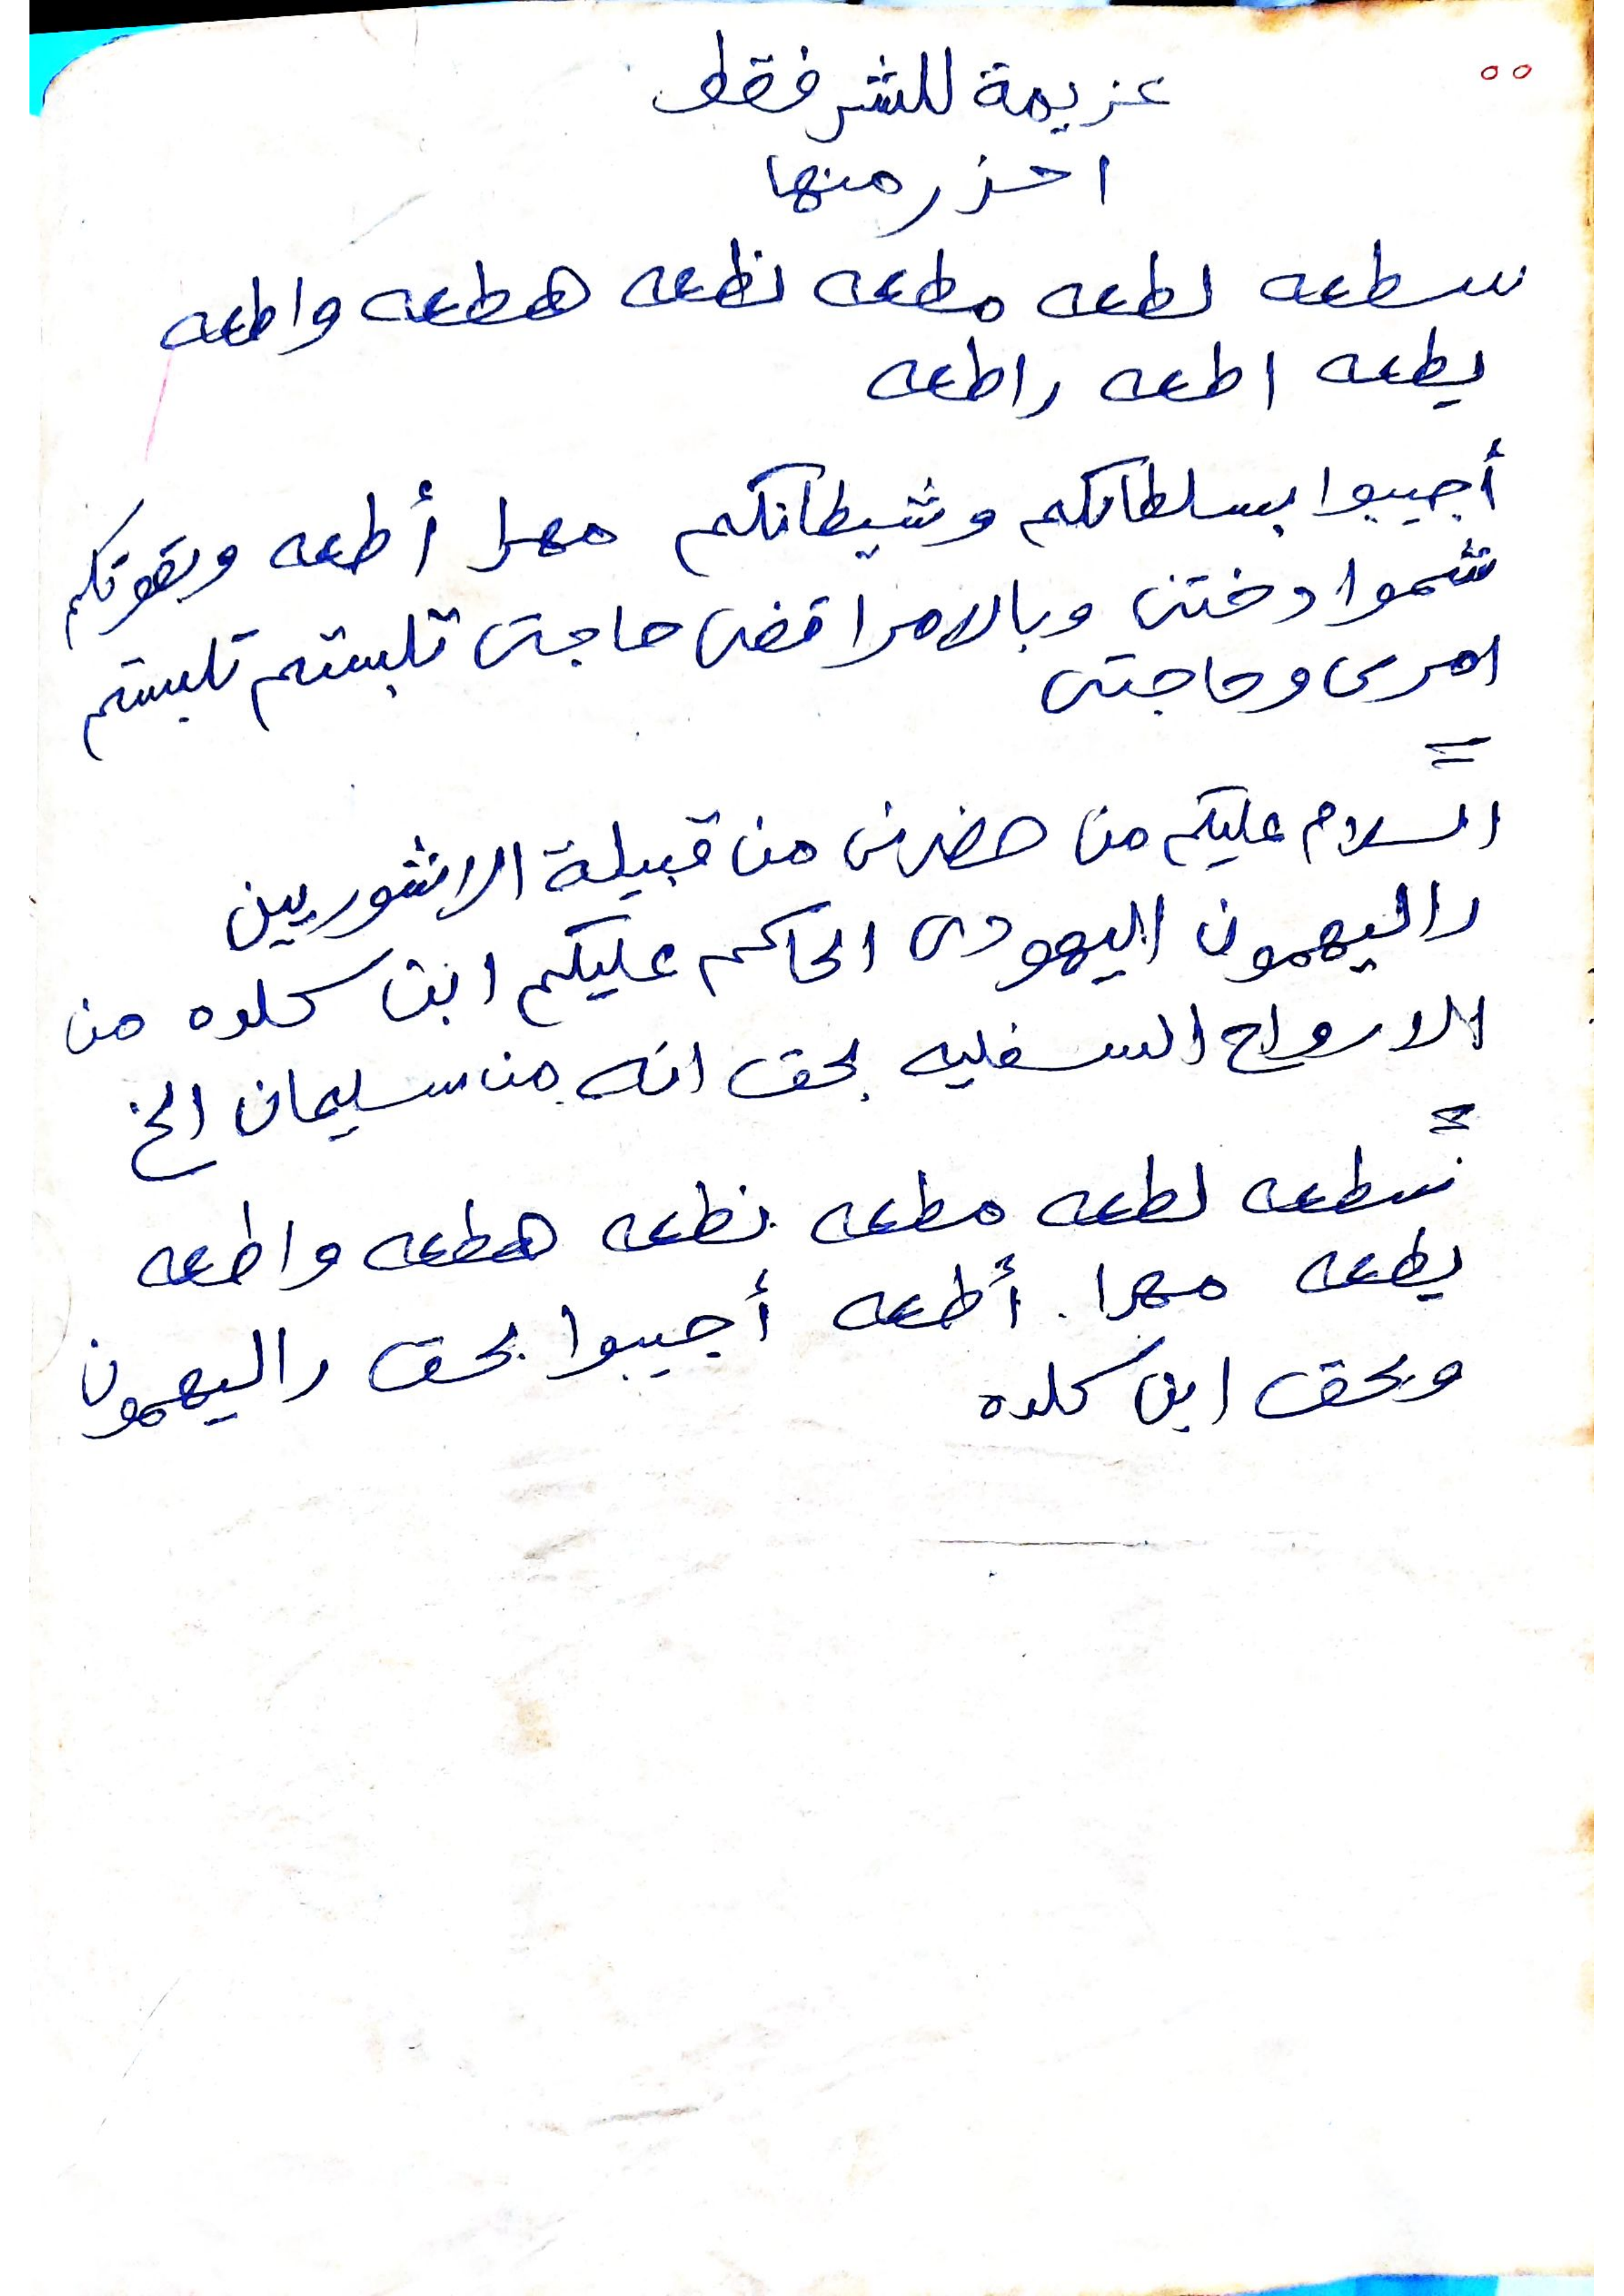 عزيمة للشر فقط
احذر منها
سطعه لطعه مطعه نطعه هطعه واطعه
يطعه اطعه راطعه
أجيبوا بسلطانكم وشيطانكم مهرا أطعه وبقوتكم
شموا دختى وبالامر اقضى حاجتى تلبستم تلبستم
امرى وحاجتى
=
السلام عليكم من حضرنى من قبيلة الانشوريين
راليهمون اليهودى الحاكم عليكم ابن كلده من
الارواح السفليه بحق انه من سليمان الخ
=
سطعه لطعه مطعه نطعه هطعه واطعه
يطعه مهرا. أطعه أجيبوا بحق راليهمون
وبحق ابن كلده